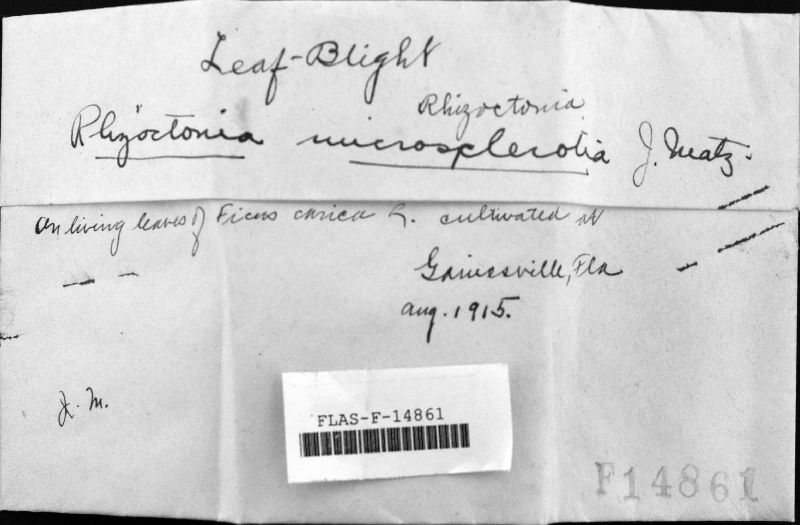 Leaf-Blight
Rhizoctonia
Rhizoctonia microsclerotia J. Matz.
On living leaves of Ficus carica L. cultivated at
Gainesville, Fla
Aug. 1915.
J. M.
FLAS-F-14861
F14861